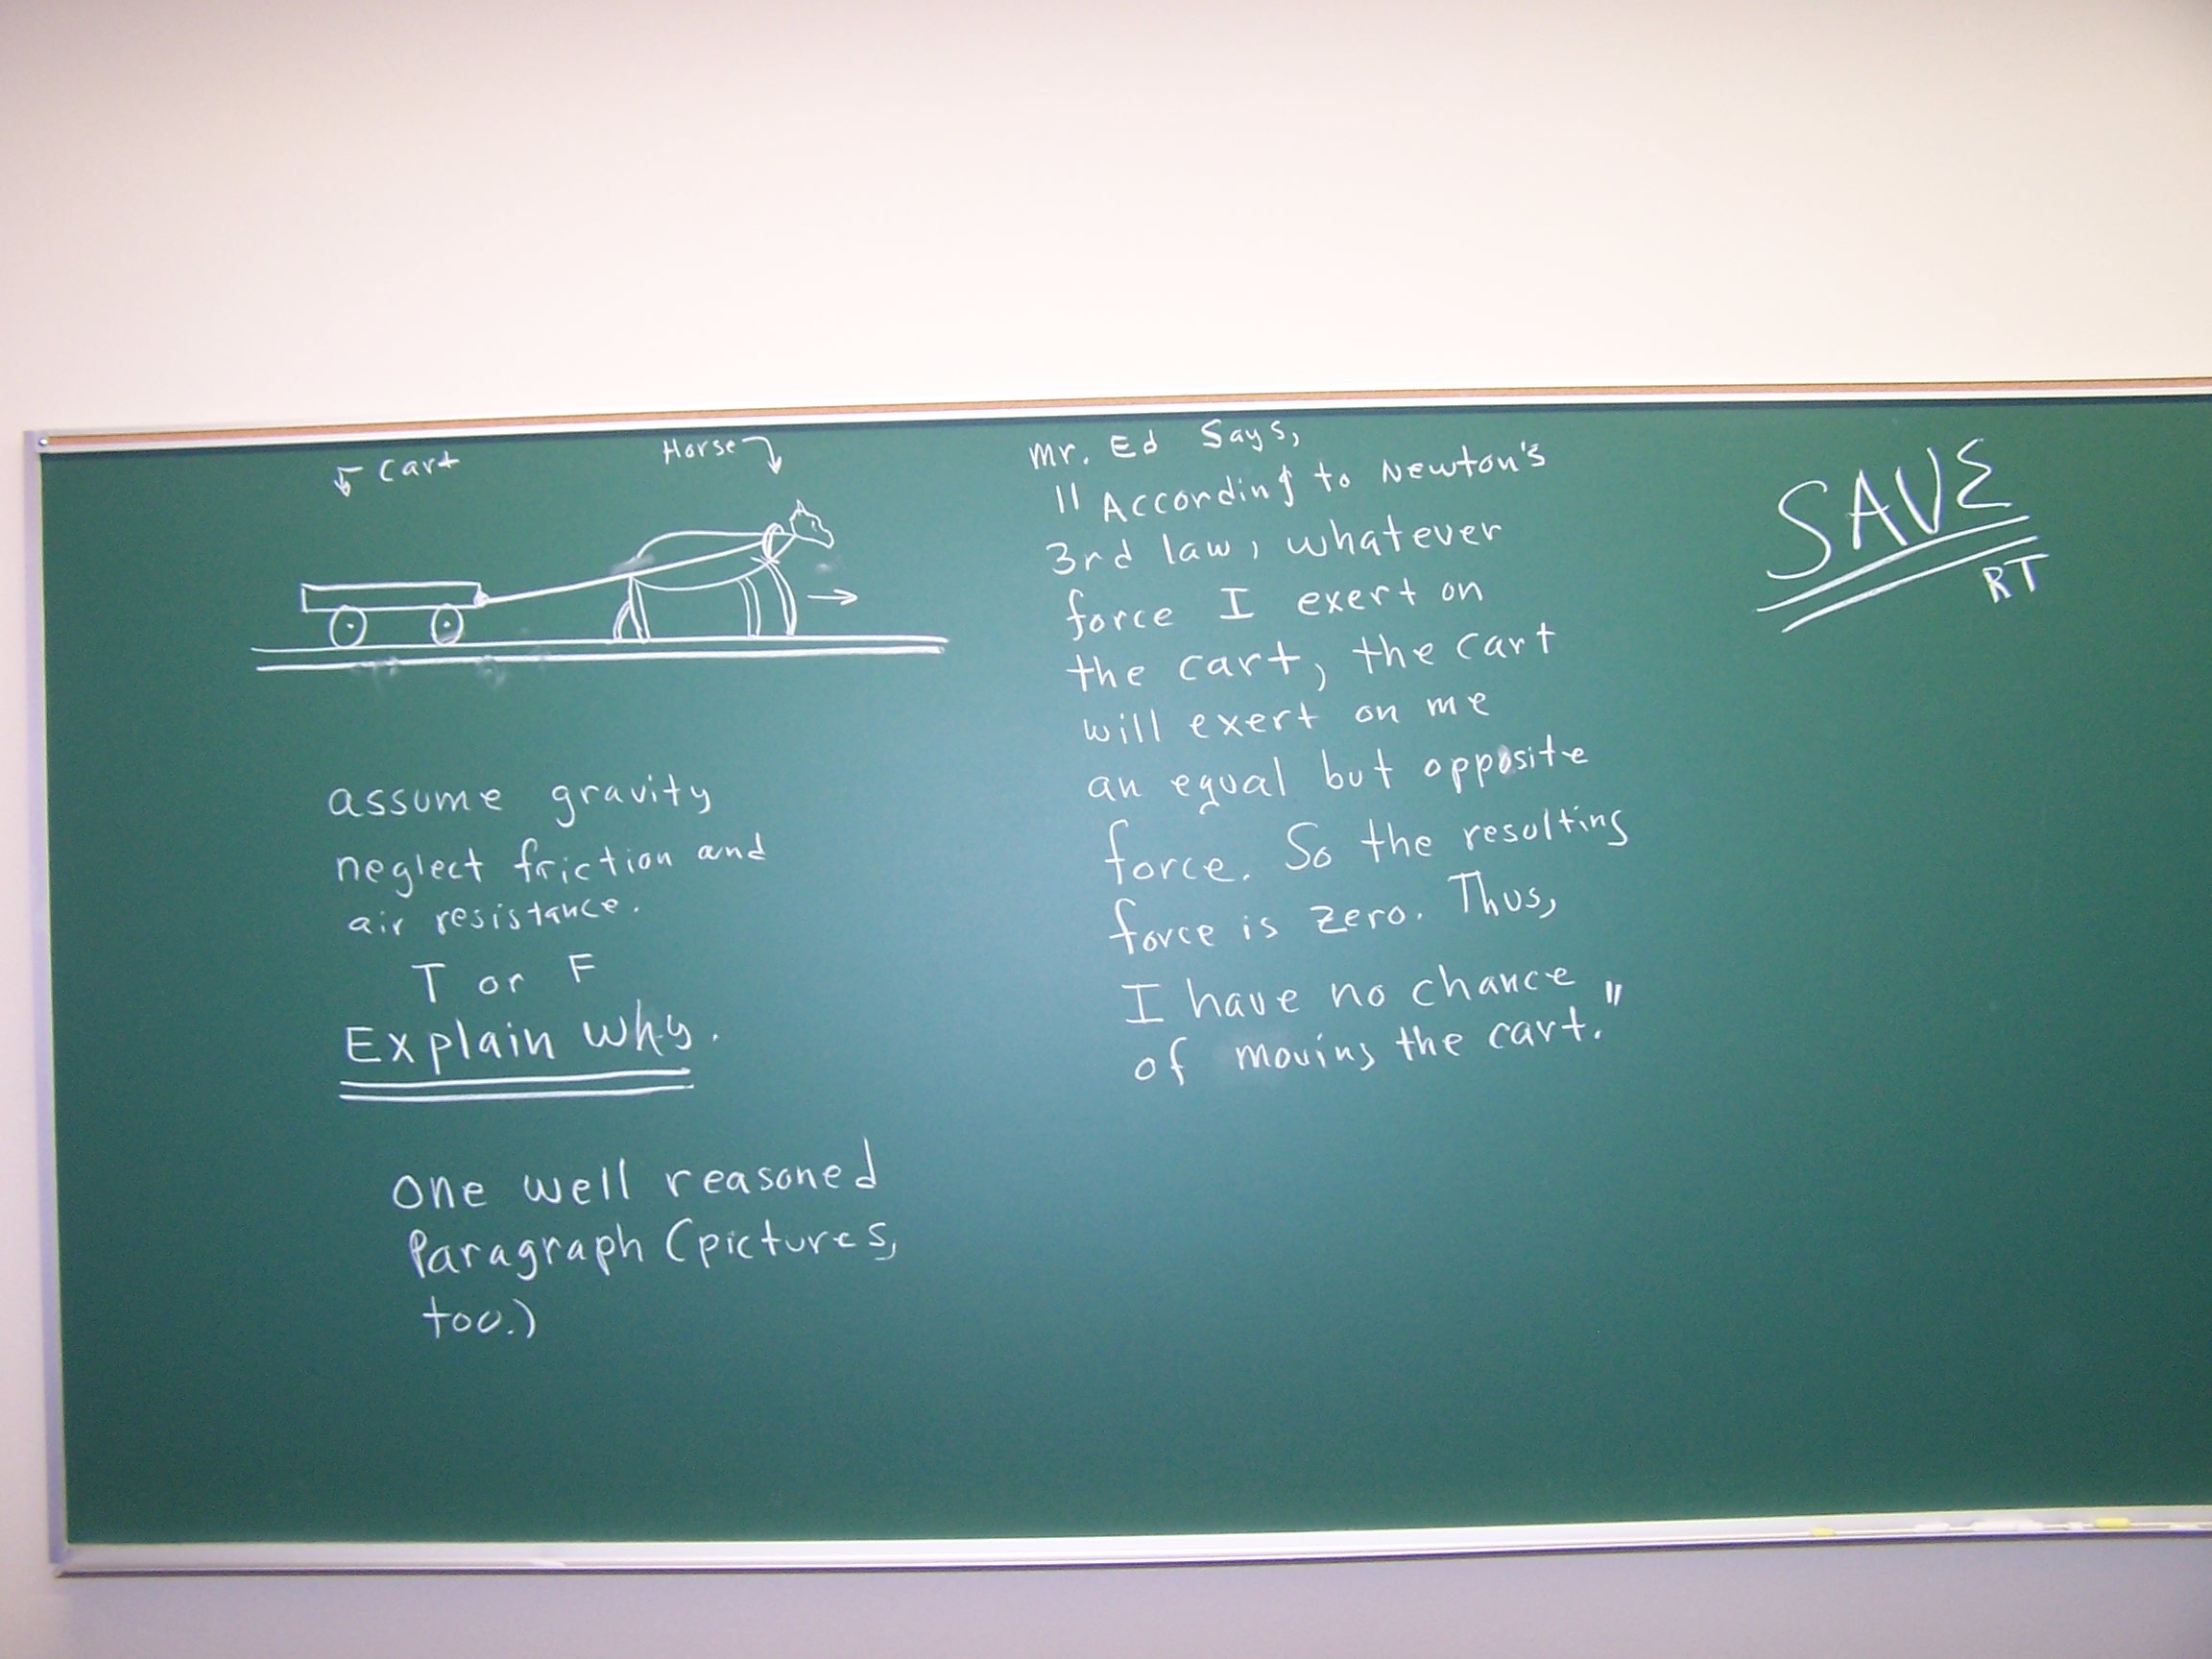 Cart
Horse
assume gravity
neglect friction and
air resistance.
T or F
Explain why.
One well reasoned
Paragraph (pictures,
too.)
Mr. Ed Says,
"According to Newton's
3rd law, whatever
force I exert on
the cart, the cart
will exert on me
an equal but opposite
force. So the resulting
force is zero. Thus,
I have no chance
of moving the cart."
SAVE
RT